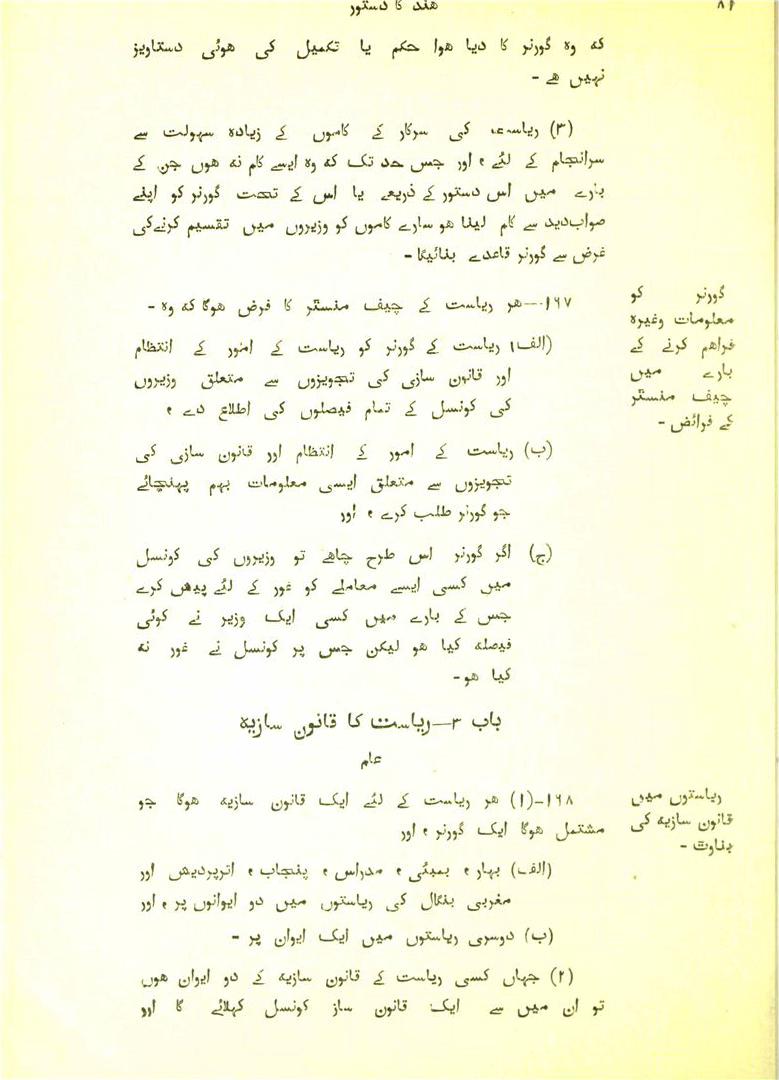 ھند کا دستور
۸۶
کہ وہ گورنر کا دیا ھوا حکم یا تکمیل کی ھوئی دستاویز
نہیں ھے -
(۳) ریاست کی سرکار کے کاموں کے زیادہ سہولت سے
سرانجام کے لئے ، اور جس حد تک کہ وہ ایسے کام نہ ھوں جن کے
بارے میں اس دستور کے ذریعے یا اس کے تحت گورنر کو اپنے
صوابدید سے کام لینا ھو سارے کاموں کو وزیروں میں تقسیم کرنےکی
غرض سے گورنر قاعدے بنائیگا -
گورنر کو
معلومات وغیرہ
فراھم کرنے کے
بارے میں
چیف منسٹر
کے فرائض -
۱۶۷—ھر ریاست کے چیف منسٹر کا فرض ھوگا کہ وہ -
(الف) ریاست کے گورنر کو ریاست کے امور کے انتظام
اور قانون سازی کی تجویزوں سے متعلق وزیروں
کی کونسل کے تمام فیصلوں کی اطلاع دے ،
(ب) ریاست کے امور کے انتظام اور قانون سازی کی
تجویزوں سے متعلق ایسی معلومات بہم پہنچائے
جو گورنر طلب کرے ، اور
(ج) اگر گورنر اس طرح چاھے تو وزیروں کی کونسل
میں کسی ایسے معاملے کو غور کے لئے پیش کرے
جس کے بارے میں کسی ایک وزیر نے کوئی
فیصلہ کیا ھو لیکن جس پر کونسل نے غور نہ
کیا ھو -
باب ۳—ریاست کا قانون سازیہ
عام
ریاستوں میں
قانون سازیہ کی
بناوت -
۱۶۸-(۱) ھر ریاست کے لئے ایک قانون سازیہ ھوگا جو
مشتمل ھوگا ایک گورنر ، اور
(الف) بہار ، بمبئی ، مدراس ، پنجاب ، اترپردیش اور
مغربی بنگال کی ریاستوں میں دو ایوانوں پر ، اور
(ب) دوسری ریاستوں میں ایک ایوان پر -
(۲) جہاں کسی ریاست کے قانون سازیہ کے دو ایوان ھوں
تو ان میں سے ایک قانون ساز کونسل کہلائے گا اور